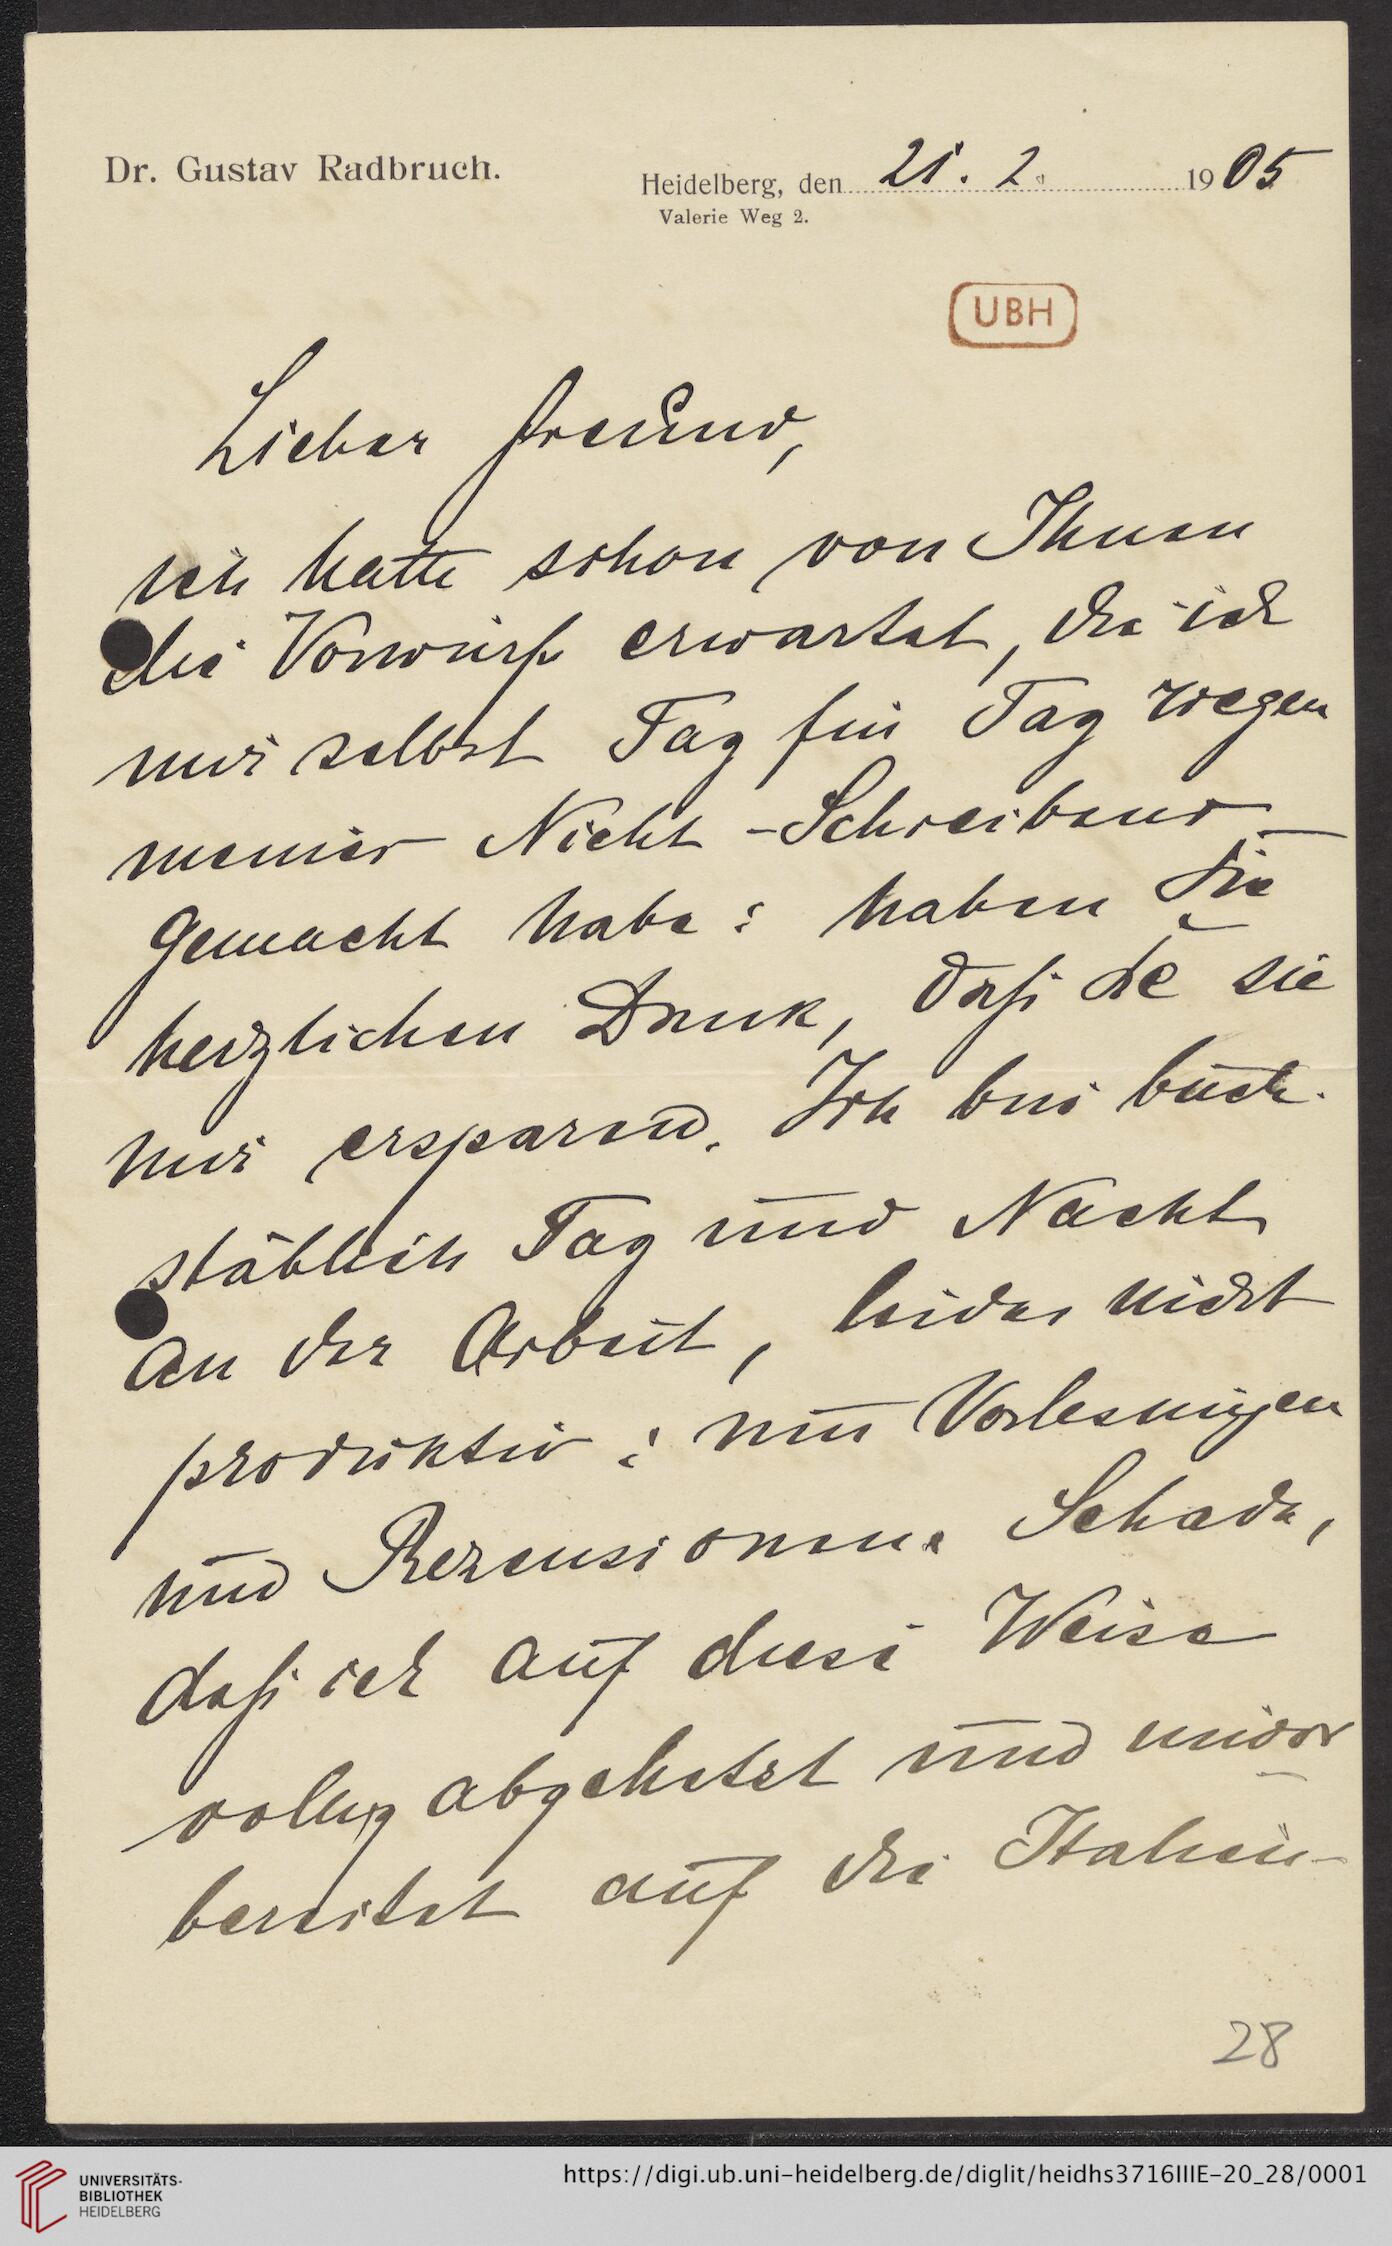 Dr. Gustav Radbruch.
Heidelberg, den 21. 2. 1905
Valerie Weg 2.
UBH
Lieber Freund,
ich hatte schon von Ihnen
die Vorwürfe erwartet, die ich
mir selbst Tag für Tag wegen
meines Nicht-Schreibens
gemacht habe: haben Sie
herzlichen Dank, daß Sie sie
mir ersparen. Ich bin buch-
stäblich Tag und Nacht
an der Arbeit, leider nicht
produktiv: nur Vorlesungen
und Rezensionen. Schade,
daß ich auf diese Weise
völlig abgehetzt und unvor
bereitet auf die Italien-
28
UNIVERSITÄTS-
BIBLIOTHEK
HEIDELBERG
https://digi.ub.uni-heidelberg.de/diglit/heidhs3716IIIE-20_28/0001